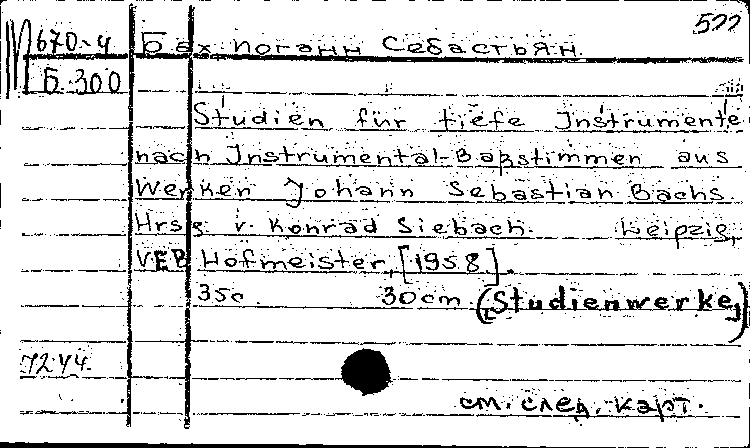 522
М670-4 Бах, Иоганн Себастьян.
Б.300
Studien für tiefe Instrumente
nach Instrumental-Baßstimmen aus
Werken Johann Sebastian Bachs.
Hrsg v. Konrad Siebach. Leipzig,
VEB Hofmeister, [1958].
35c. 30cm. (Studienwerke)
72.44.
см. след. карт.